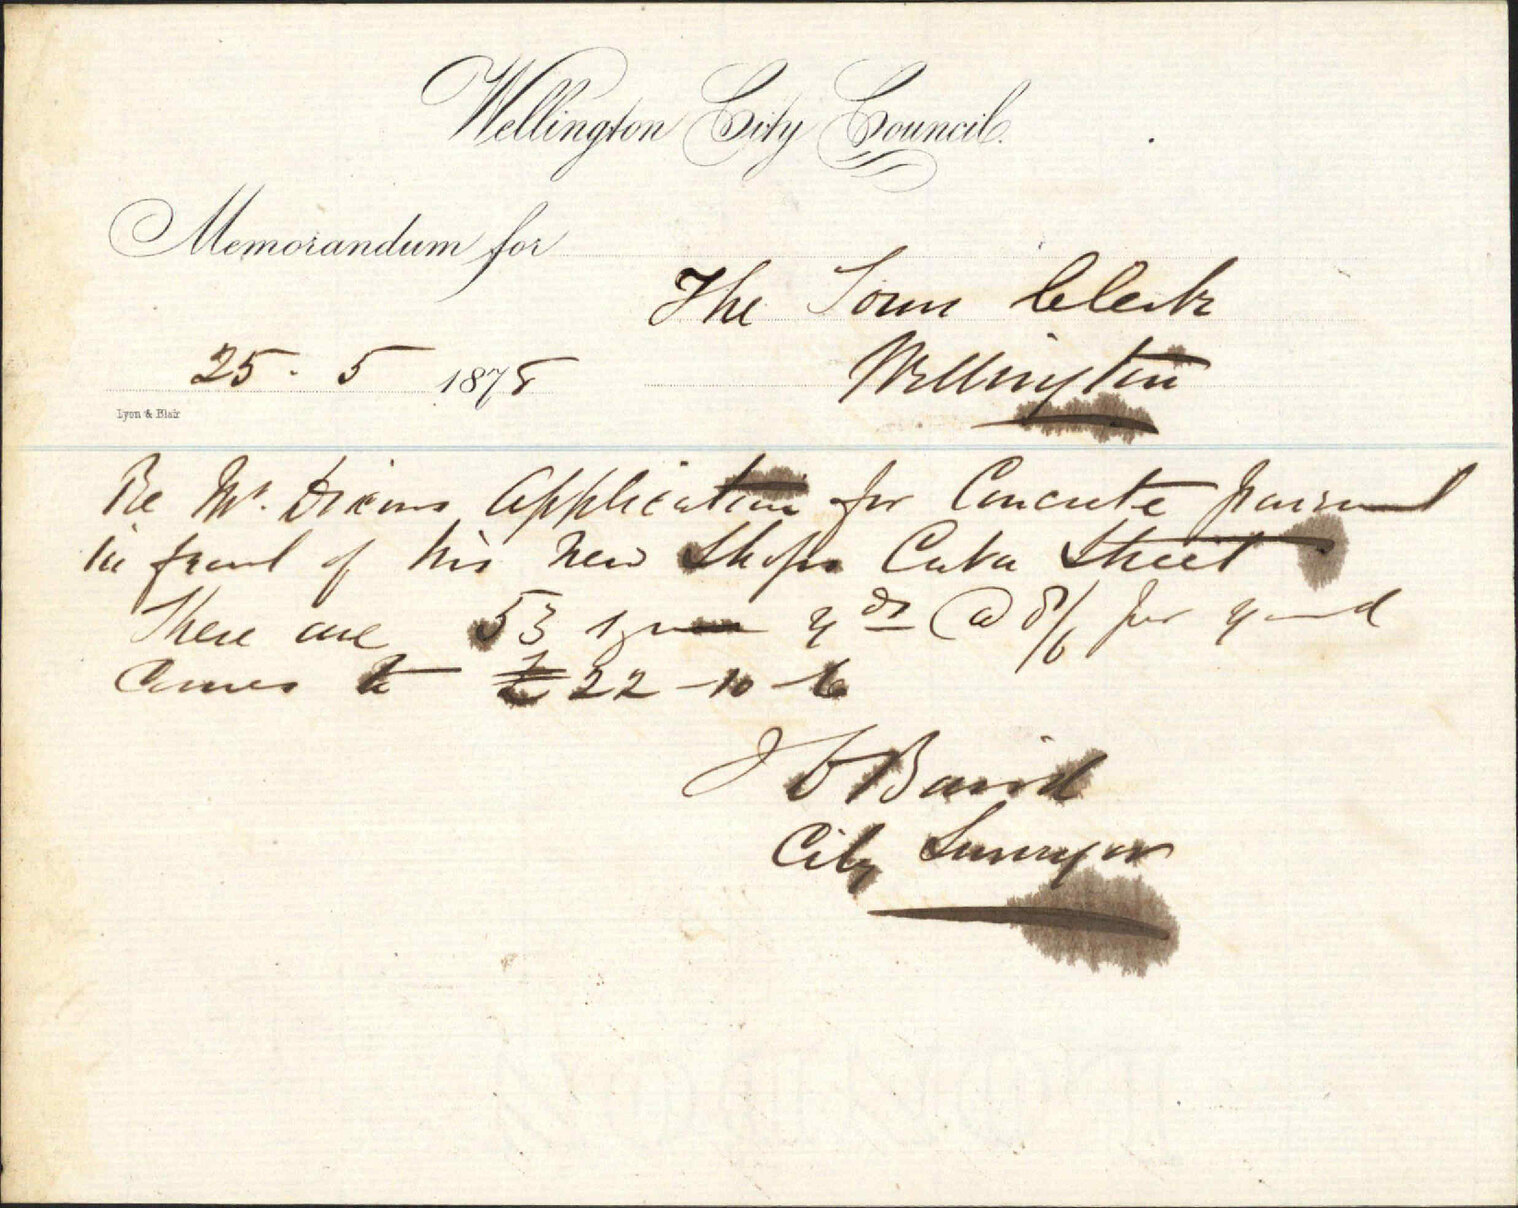 Wellington City Council.
Memorandum for
The Town Clerk
25. 5 1878
Wellington
Lyon & Blair
Re Mr. Dixons Application for Concrete pavement
in front of his new Shops Cuba Street
There are 53 square yds @ 8/6 per yard
Comes to £22-10-6
J D Baird
City Surveyor